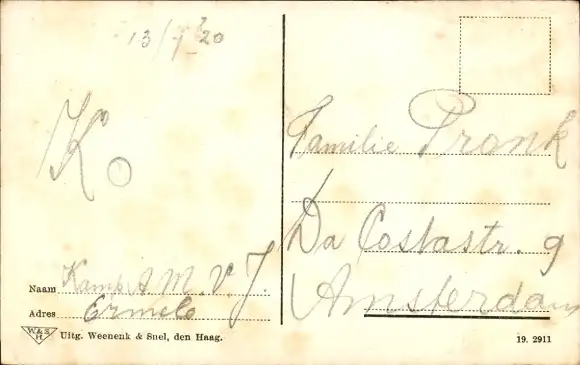 13/7 '20
K.
Familie Pronk
Da Costastr. 9
Amsterdam
Naam Kamp A.M.V.J.
Adres Ermelo
W&S
H
Uitg. Weenenk & Snel, den Haag.
19. 2911